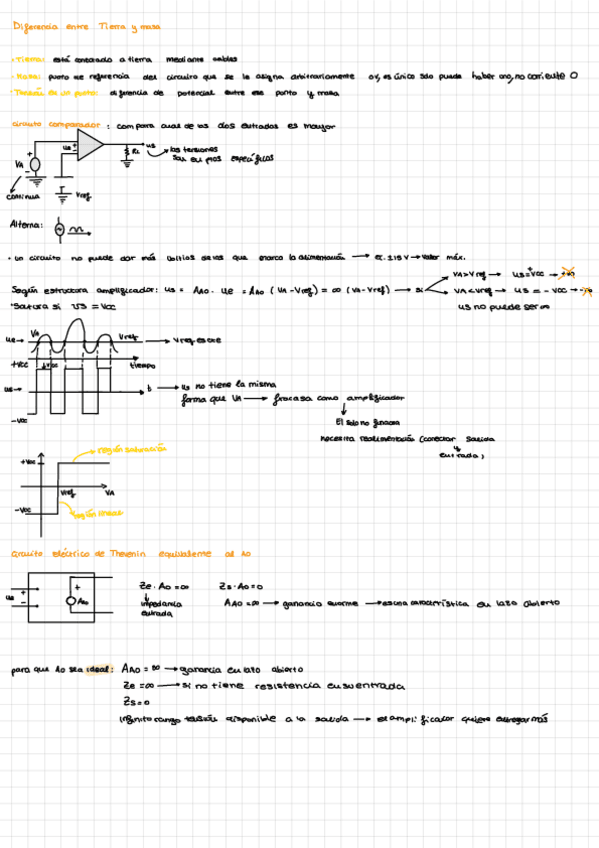 Diferencia entre Tierra y masa
· Tierra: está conectado a tierra mediante cables
· Masa: punto de referencia del circuito que se le asigna arbitrariamente 0V, es único solo puede haber uno, no corriente 0
· Tensión de un punto: diferencia de potencial entre ese punto y masa
Circuito comparador: compara cual de las dos entradas es mayor
+ ue
VA
RL
us
las tensiones
son en ptos específicos
continua
Vref
Alterna:
· un circuito no puede dar más voltios de los que marca la alimentación → valor máx.
Según estructura amplificador: us = AAO · ue = AAO (VA - Vref) = ∞ (VA - Vref) → si
VA > Vref → us = +Vcc → +∞
VA < Vref → us = -Vcc → -∞
us no puede ser ∞
·Satura si us = Vcc
ue →
VA
Vref → Vref es cte
+Vcc
+Vcc
tiempo
us →
t → us no tiene la misma
forma que VA → fracasa como amplificador
-Vcc
El solo no funciona
necesita realimentación (conectar salida
y
entrada)
región saturación
+Vcc
Vref
VA
-Vcc
región lineal
Circuito eléctrico de Thevenin equivalente al AO
ue
+
-
+
AAO
-
Ze·AO = ∞
Zs·AO = 0
impedancia
entrada
AAO = ∞ → ganancia enorme → es una característica en lazo abierto
para que AO sea ideal: AAO = ∞ → ganancia en lazo abierto
Ze = ∞ → si no tiene resistencia en su entrada
Zs = 0
Infinito rango tensión disponible a la salida → el amplificador quiere entregar más